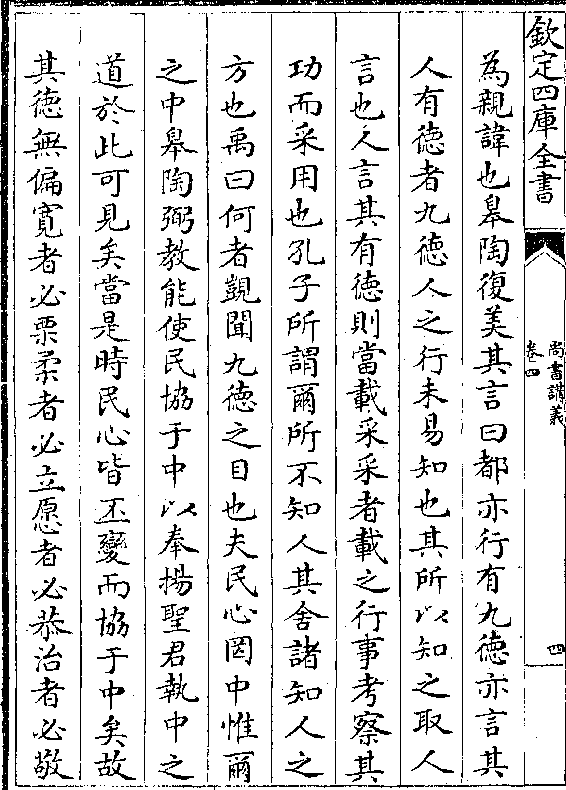 欽定四庫全書
尚書講義
卷四
四
為親諱也皋陶復美其言曰都亦行有九德亦言其
人有德者九德人之行未易知也其所以知之取人
言也人言其有德則當載采采者載之行事考察其
功而采用也孔子所謂爾所不知人其舍諸知人之
方也禹曰何者覬聞九德之目也夫民心罔中惟爾
之中皋陶弼教能使民協于中以奉揚聖君執中之
道於此可見矣當是時民心皆丕變而協于中矣故
其德無偏寛者必栗柔者必立愿者必恭治者必敬